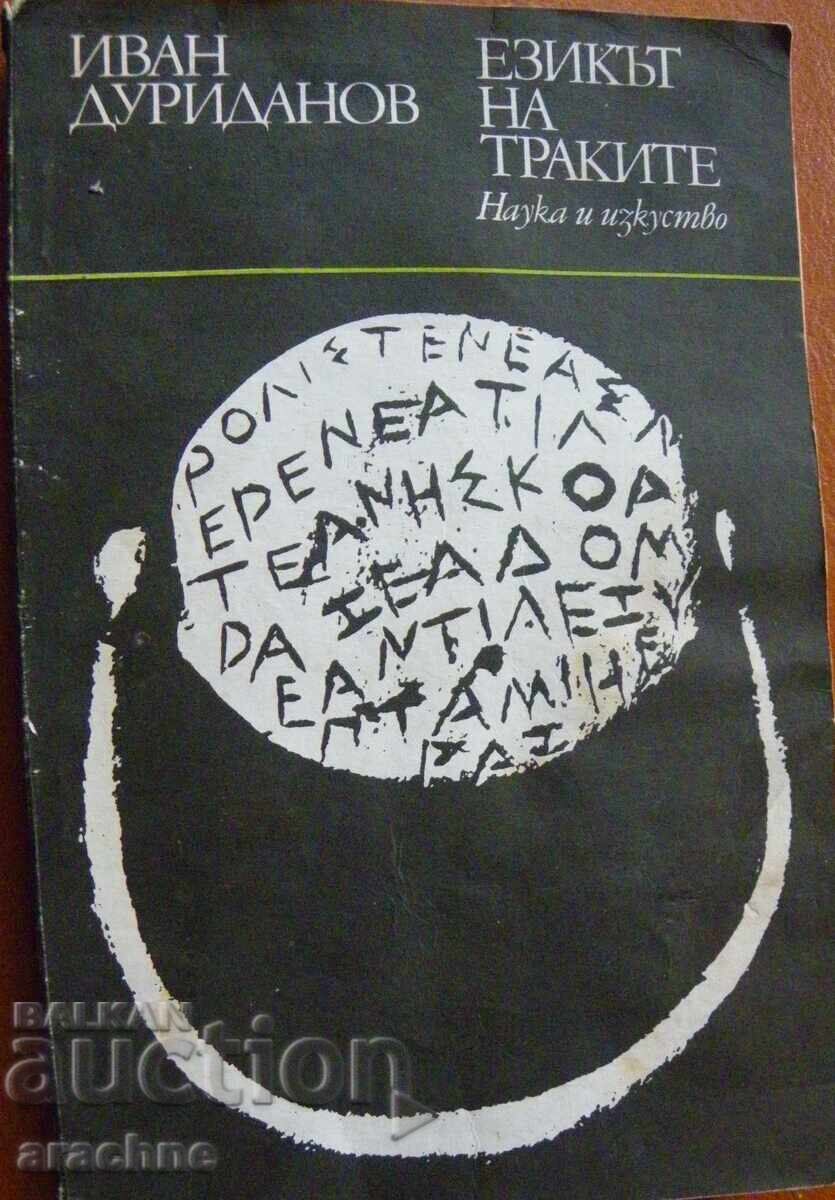 ИВАН
ДУРИДАНОВ
ЕЗИКЪТ
НА
ТРАКИТЕ
Наука и изкуство
ΡΟΛΙΣΤΕΝΕΑΣΝ
ΕΡΕΝΕΑΤΙΛ
ΤΕΑΝΗΣΚΟΑ
ΡΑΖΕΑΔΟΜ
ΕΑΝΤΙΛΕΖΥ
ΠΤΑΜΙΗΕ
ΡΑΖ
BALKAN
auction
arachne